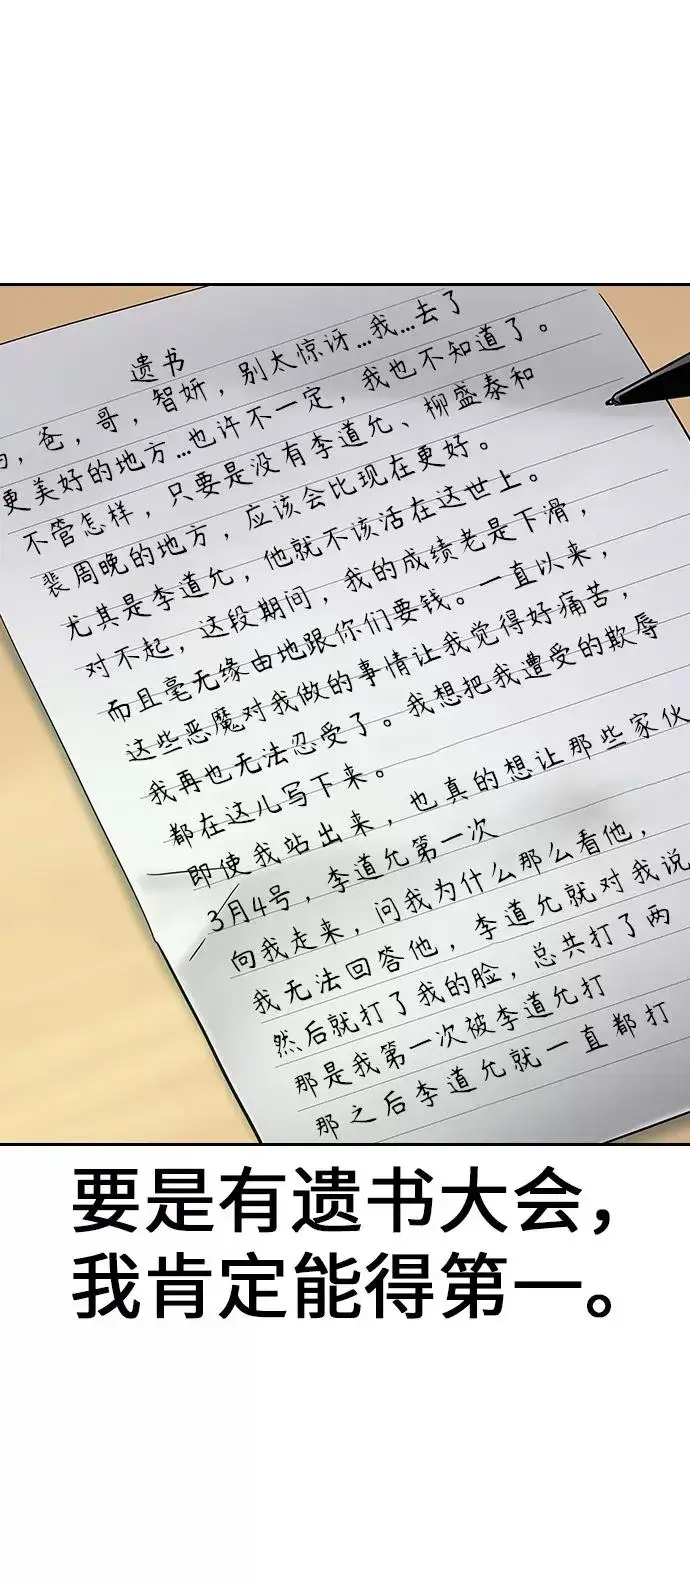 遗书
妈，爸，哥，智妍，别太惊讶…我…去了
更美好的地方…也许不一定，我也不知道了。
不管怎样，只要是没有李道允、柳盛泰和
裴周晚的地方，应该会比现在更好。
尤其是李道允，他就不该活在这世上。
对不起，这段期间，我的成绩老是下滑，
而且毫无缘由地跟你们要钱。一直以来，
这些恶魔对我做的事情让我觉得好痛苦，
我再也无法忍受了。我想把我遭受的欺辱
都在这儿写下来。
即使我站出来，也真的想让那些家伙
3月4号，李道允第一次
向我走来，问我为什么那么看他，
我无法回答他，李道允就对我说
然后就打了我的脸，总共打了两
那是我第一次被李道允打
那之后李道允就一直都打
要是有遗书大会，
我肯定能得第一。